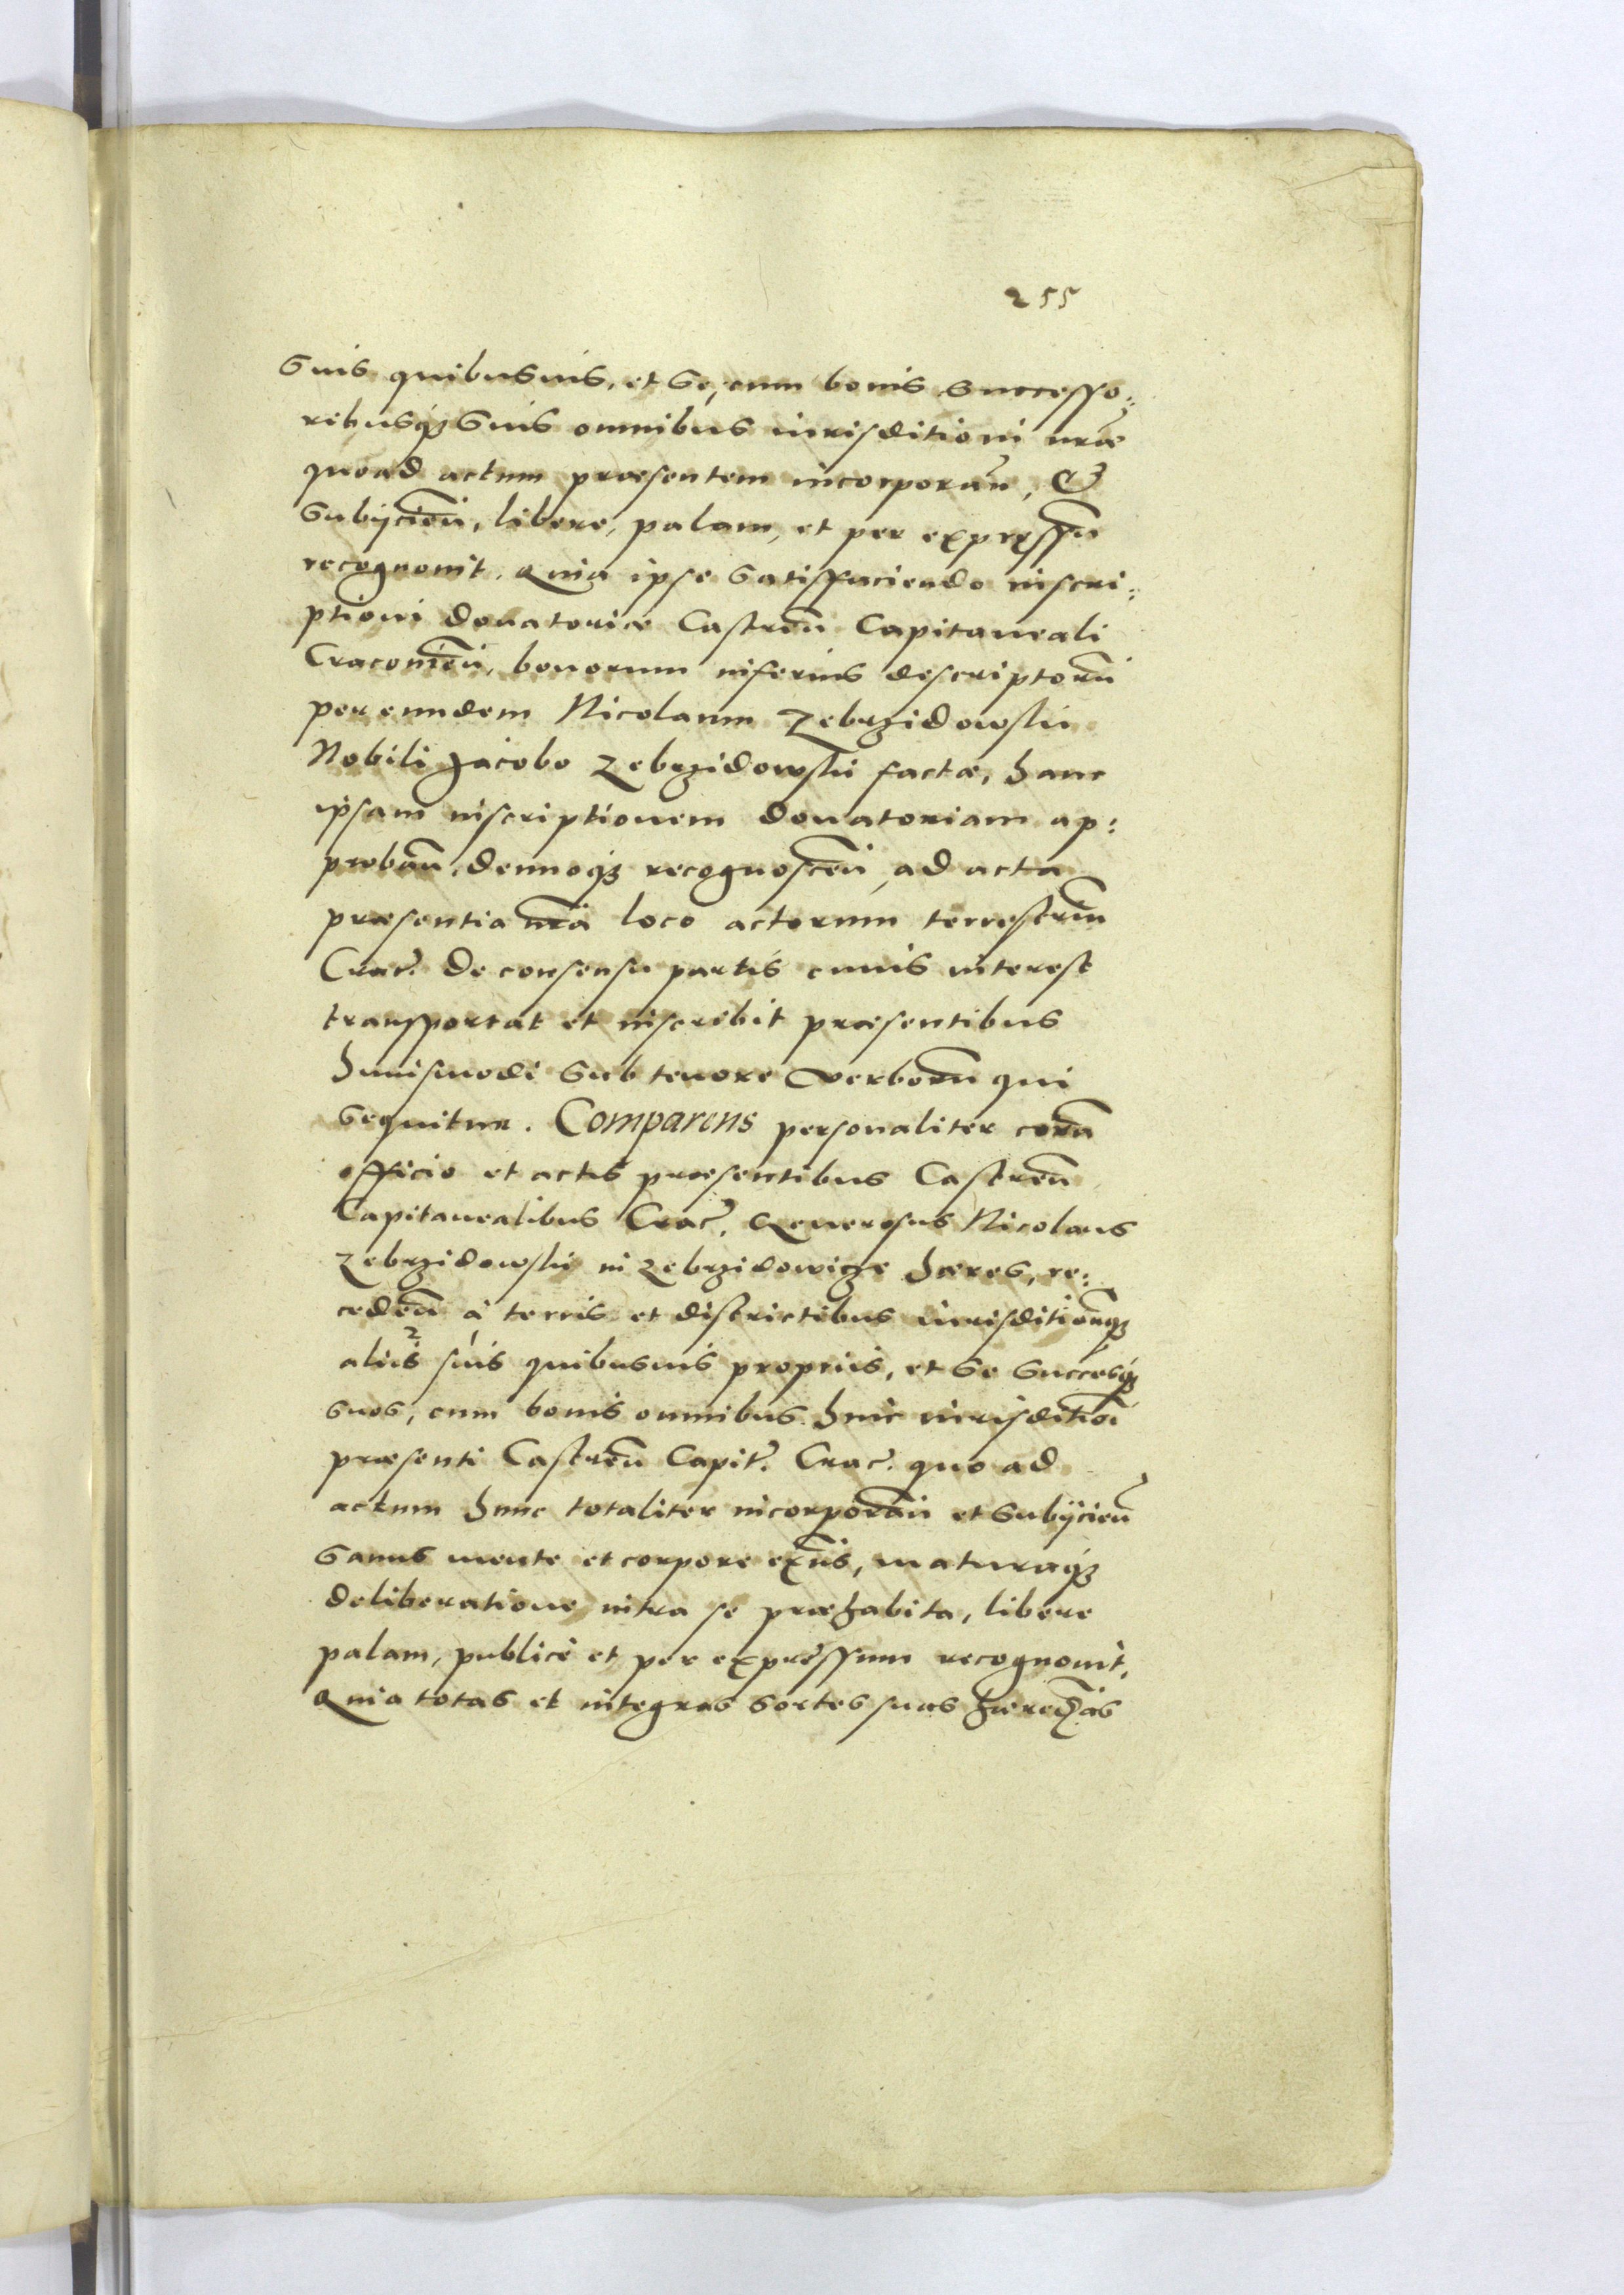 255
suis quibusuis, et se, cum bonis successo:
ribusq̃ suis omnibus iurisditioni nr̃æ
quoad actum præsentem incorporan̄, &
subijcien̄, libere, palam, et per expressu̅
recognouit. Quia ipse satisfaciendo inscri:
ptioni donatoriæ Castren̄ Capitaneali
Cracouien̄, bonorum inferius descriptoru̅
per eundem Nicolaum Zebrzidowski
Nobili Jacobo Zebrzidowski factæ, hanc
ipsam inscriptionem donatoriam ap:
proban̄, denuoq̃ recognoscen̄, ad acta
præsentia nr̃a loco actorum terrestriu̅
Crac̃. de consensu partis cuius interest
transportat et inscribit præsentibus
huiusmodi sub tenore verboru̅ qui
sequitur. Comparens personaliter cora̅
officio et actis præsentibus Castren̄
Capitanealibus Crac̃. Generosus Nicolaus
Zebrzidowski in Zebrzidowicze hæres, re:
ceden̄ à terris et districtibus iurisditioneq̃
aliis² suis¹ quibusuis propriis, et se succesq̃
suos, cum bonis omnibus huic iurisditioi̅
præsenti Castren̄ Capit̃. Crac̃. quo ad
actum hunc totaliter incorporan̄ et subijcien̄
sanus mente et corpore exn̄s, maturaq̃
deliberatione intra se præhabita, libere
palam, publicè et per expressum recognouit,
Quia totas et integras sortes suas hæred̃as